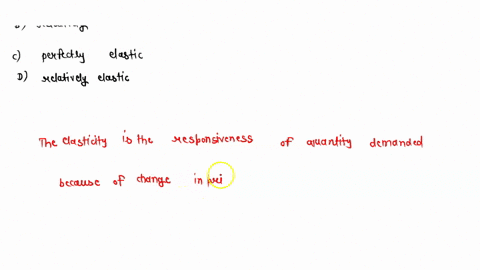 C) perfectly elastic
D) relatively elastic
The elasticity is the responsiveness of quantity demanded
because of change in pri